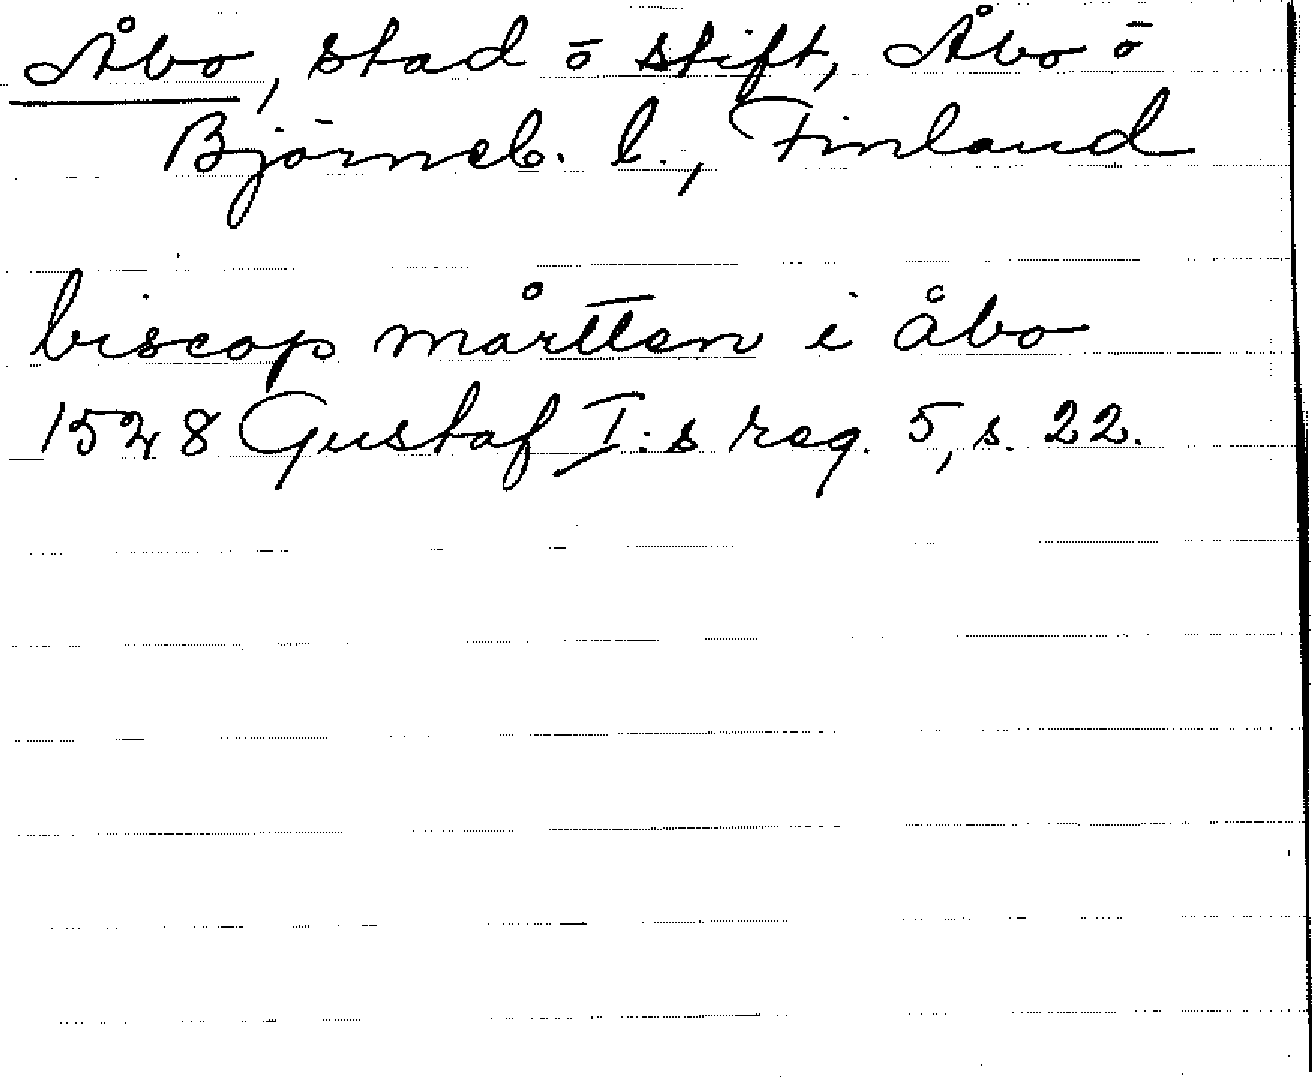 Åbo, stad ō stift, Åbo ō
Björneb. l., Finland
biscop mårtten i åbo
1528 Gustaf I:s reg. 5, s. 22.